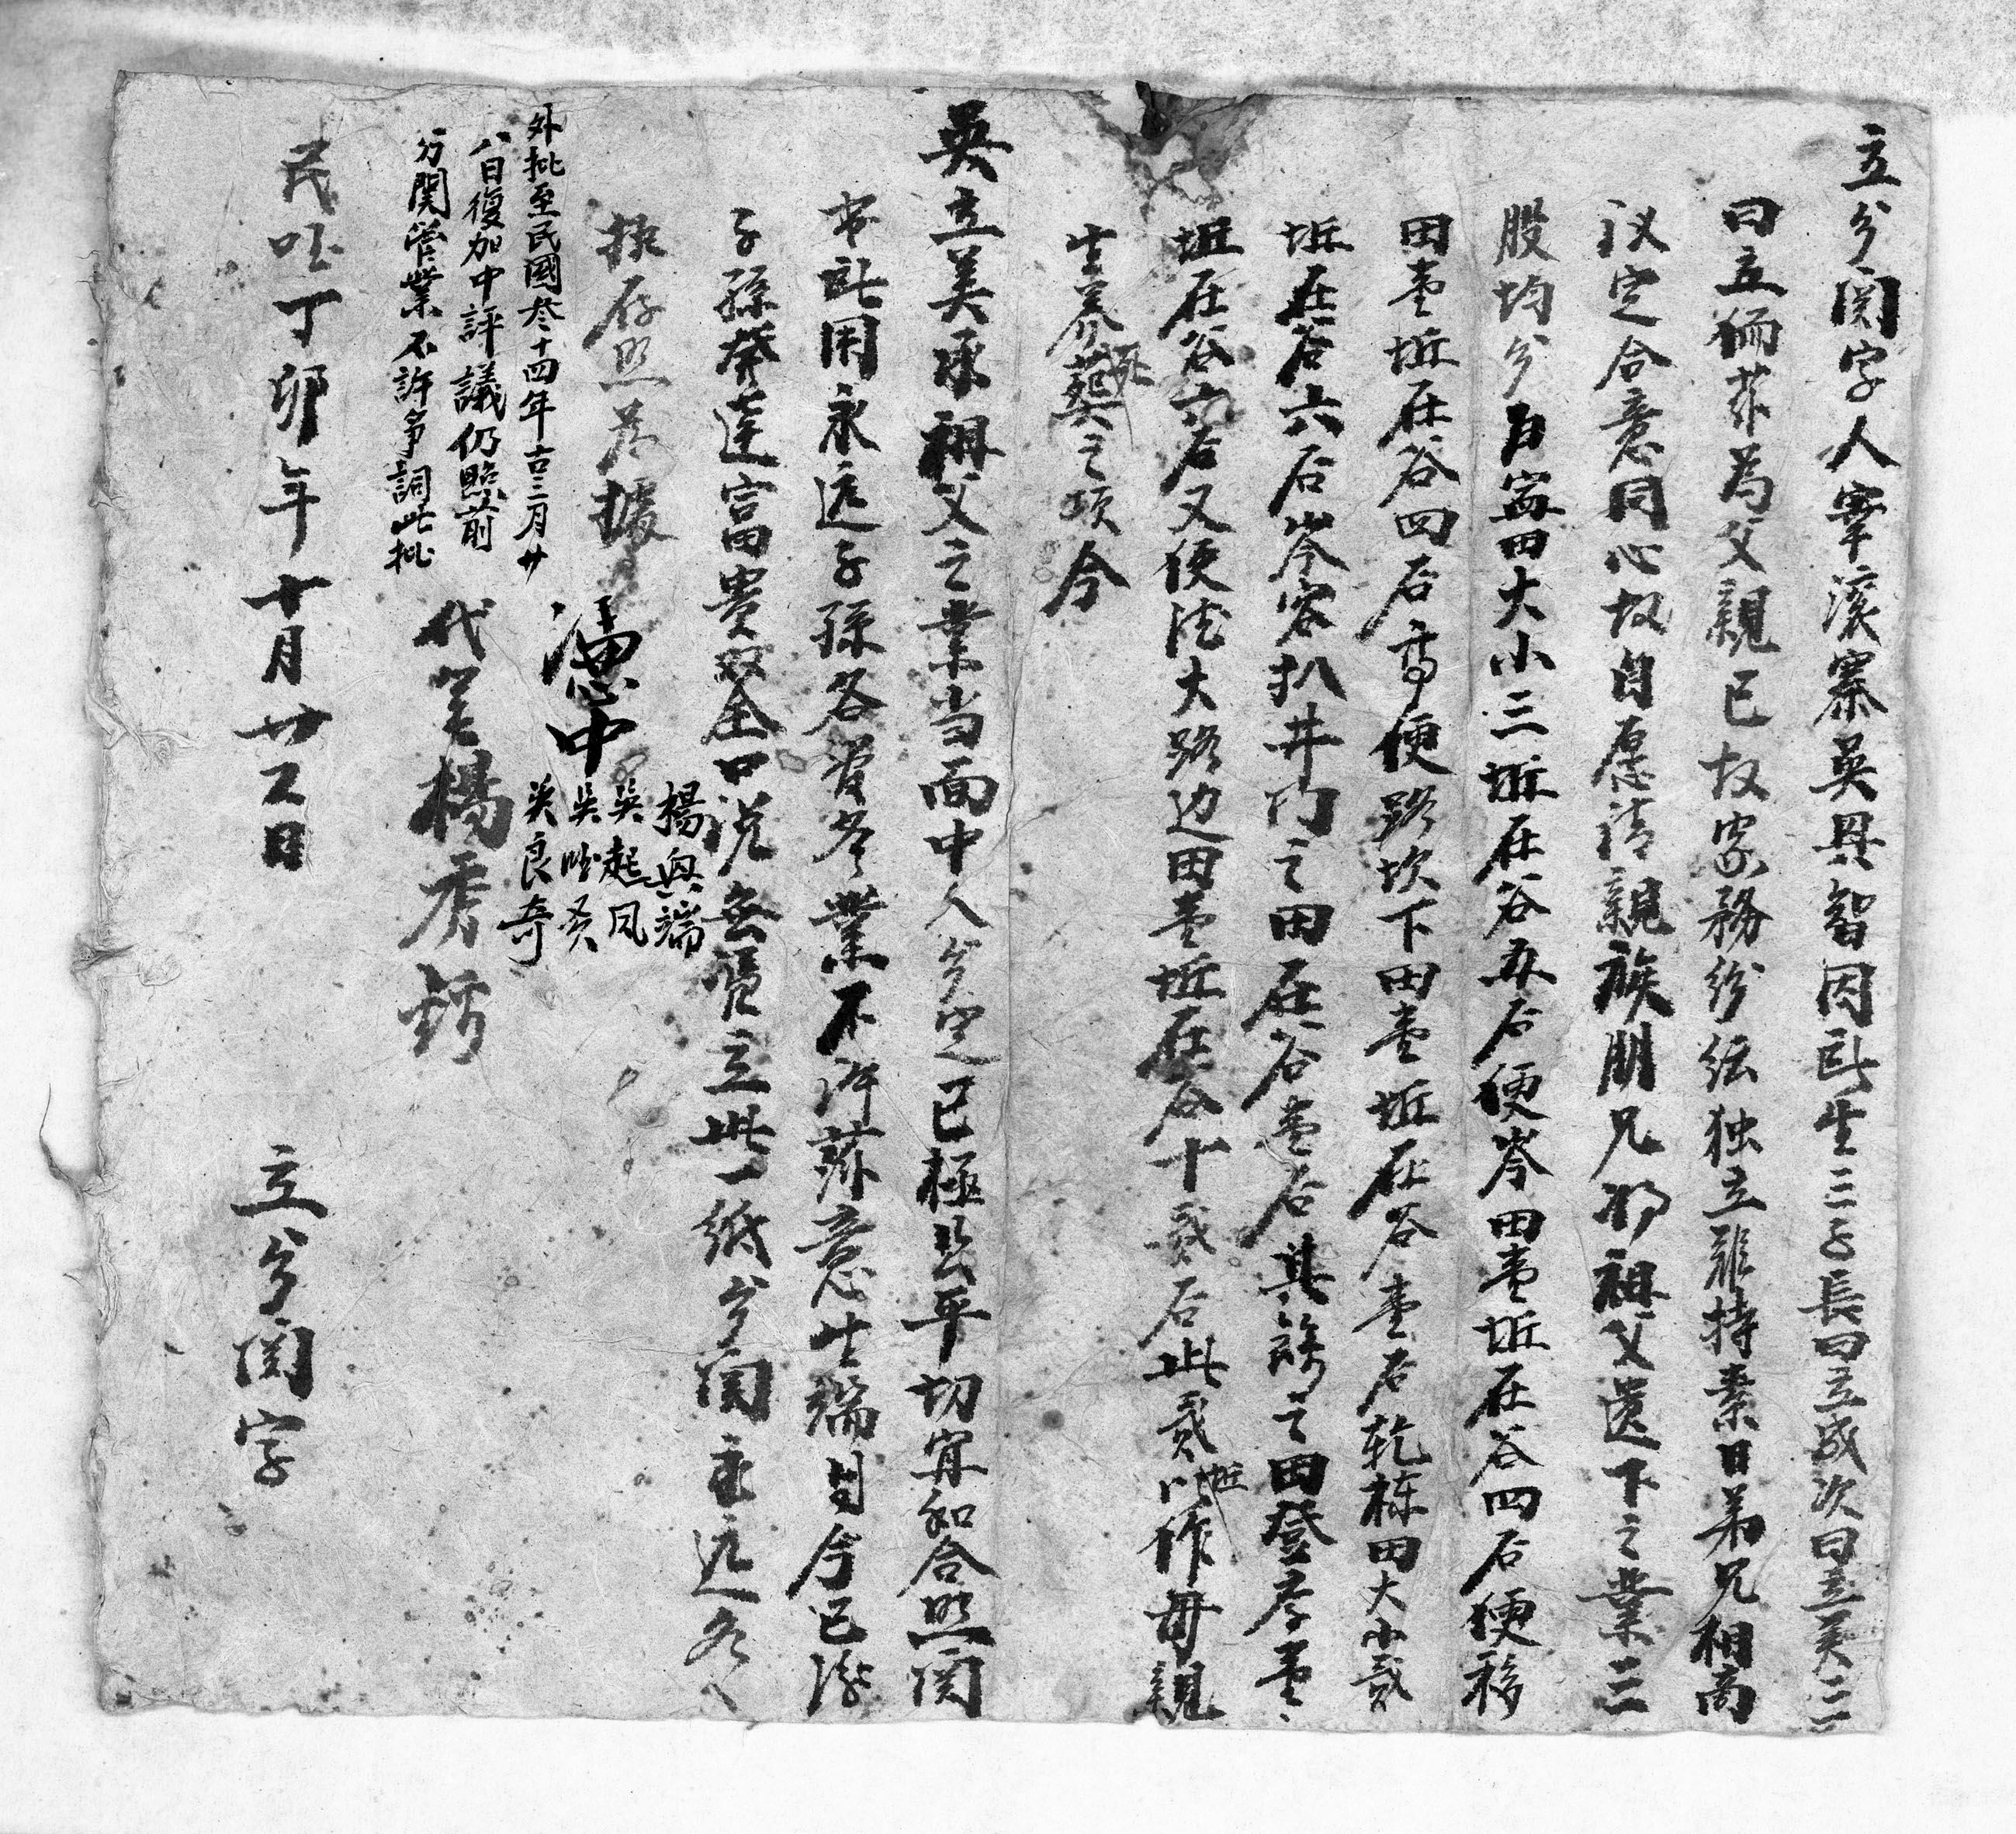 立分関字人寧滚寨吴昌智因卧生三子長曰立成次曰立美三
曰立獅茲為父親已故家務紛紜独立难持素日弟兄相商
议定合意同心故自愿请親族朋兄将祖父遗下之業三
股均分田大小三坵在谷五石便岑田壹坵在谷四石便移
田壹坵在谷四石高便路坎下田壹坵在谷壹石乾棟田大小貳
坵在谷六石岑容扒井门之田在谷壹石其餘之田登孝壹
坵在谷六石又便大路边田壹坵在谷十貳石此貳坵以作母親
生养死葬之項今
吴立美承祖父之業当面中人分定已極公平切宜和合照関
永遠子孫各管各業不許蓛意生端自今已后
子孫發達富貴双全口说無憑立此一纸分関永遠各
执存照為據
憑中
楊興端
吴起凤
吴
吴良奇
外批至民國叁十四年古三月廿
八日復加中評議仍照前
分関管業不許争詞此批
代笔楊秀
民国丁卯年十月廿又日 立分関字